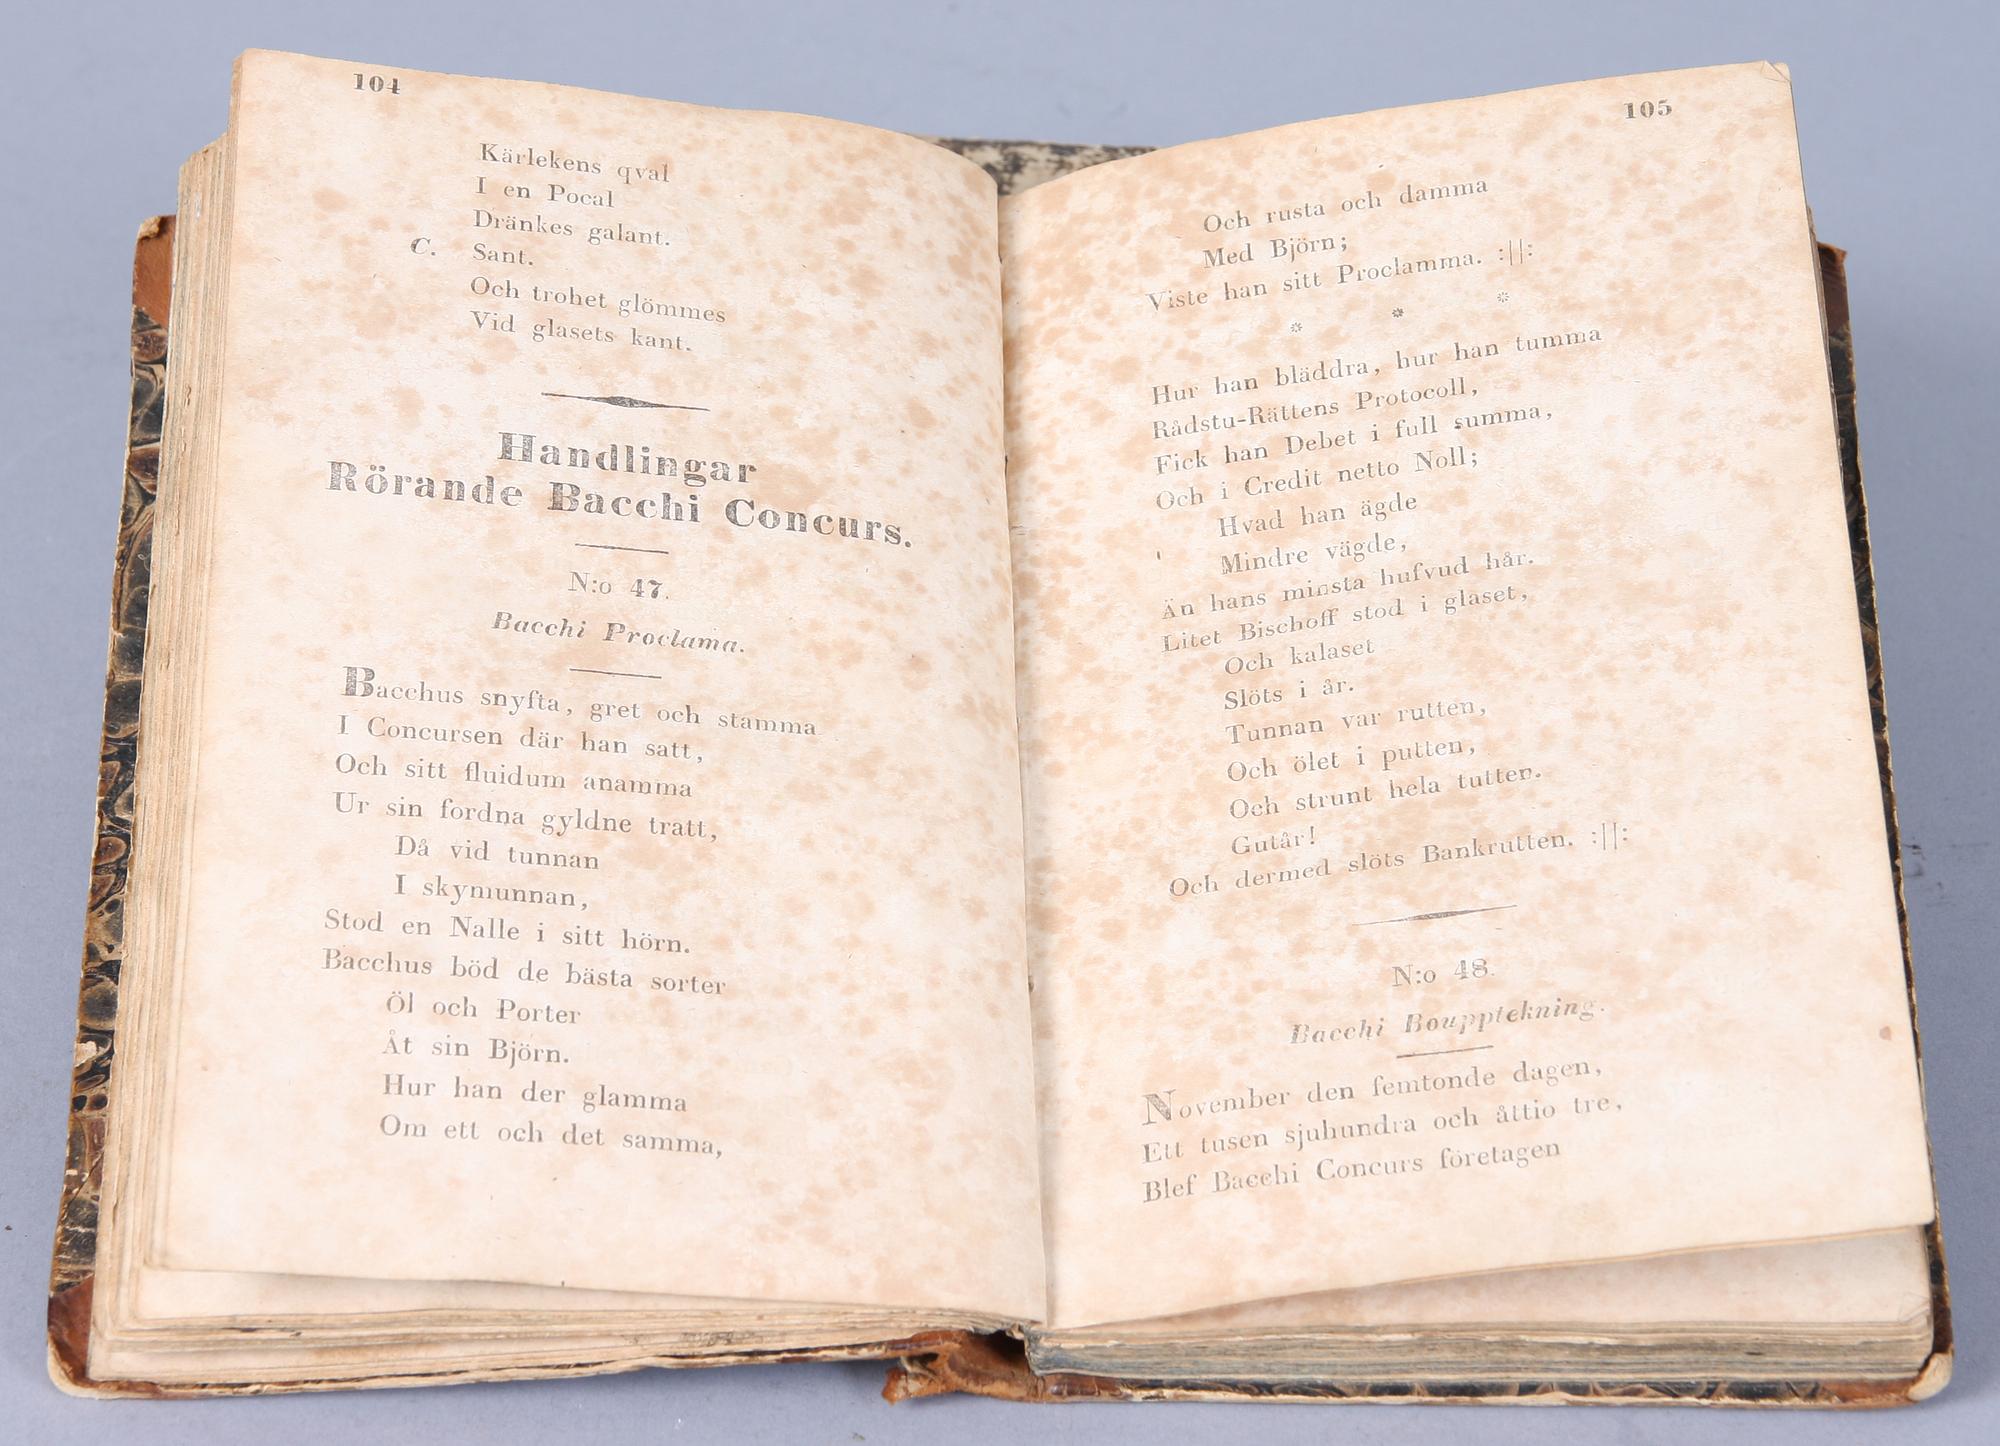 104
Kärlekens qval
I en Pocal
Dränkes galant.
C. Sant.
Och trohet glömmes
Vid glasets kant.
Handlingar
Rörande Bacchi Concurs.
N:o 47.
Bacchi Proclama.
Bacchus snyfta, gret och stamma
I Concursen där han satt,
Och sitt fluidum anamma
Ur sin fordna gyldne tratt,
Då vid tunnan
I skymunnan,
Stod en Nalle i sitt hörn.
Bacchus böd de bästa sorter
Öl och Porter
Åt sin Björn.
Hur han der glamma
Om ett och det samma,
105
Och rusta och damma
Med Björn;
Viste han sitt Proclamma. :||:
* * *
Hur han bläddra, hur han tumma
Rådstu-Rättens Protocoll,
Fick han Debet i full summa,
Och i Credit netto Noll;
Hvad han ägde
Mindre vägde,
Än hans minsta hufvud hår.
Litet Bischoff stod i glaset,
Och kalaset
Slöts i år.
Tunnan var rutten,
Och ölet i putten,
Och strunt hela tutten.
Gutår!
Och dermed slöts Bankrutten. :||:
N:o 48.
Bacchi Bouppteknîng.
November den femtonde dagen,
Ett tusen sjuhundra och åttio tre,
Blef Bacchi Concurs företagen